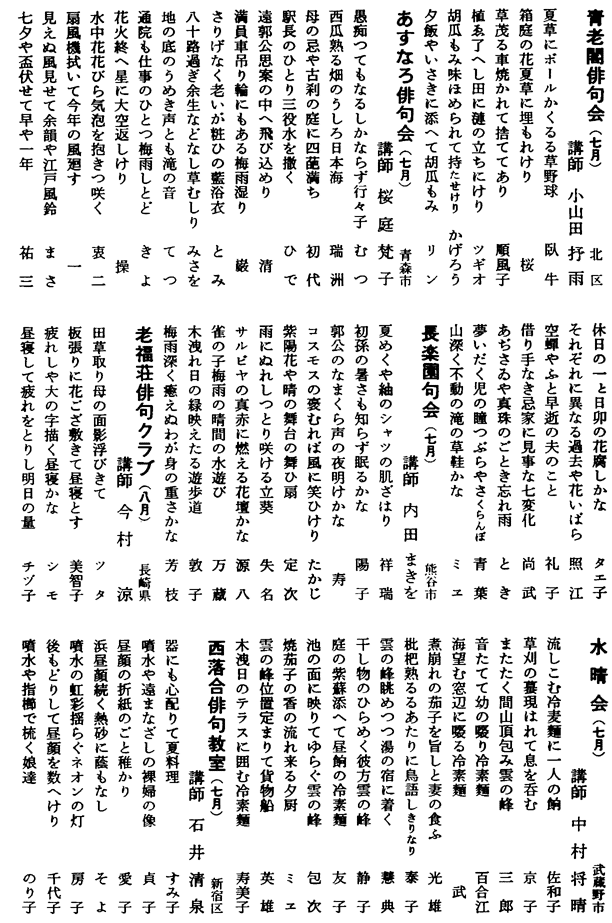 青老閣俳句会（七月） 北区
講師 小山田 抒雨
夏草にボールかくるる草野球 臥牛
箱庭の花夏草に埋もれけり 桜
草茂る車焼かれて捨ててあり 順風子
植ゑ了へし田に漣の立ちにけり ツギオ
胡瓜もみ味ほめられて持たせけり かげろう
夕飯やいさきに添へて胡瓜もみ リン
あすなろ俳句会（七月） 青森市
講師 桜庭 梵子
愚痴つてもなるしかならず行々子 むつ
西瓜熟る畑のうしろ日本海 瑞洲
母の忌や古刹の庭に四葩満ち 初代
駅長のひとり三役水を撒く ひで
遠郭公思案の中へ飛び込めり 清
満員車吊り輪にもある梅雨湿り 巌
さりげなく老いが粧ひの藍浴衣 とみ
八十路過ぎ余生などなし草むしり みさを
地の底のうめき声とも滝の音 てつ
通院も仕事のひとつ梅雨しとど きよ
花火終へ星に大空返しけり 操
水中花花びら気泡を抱きつ咲く 衷二
扇風機拭いて今年の風廻す 一
見えぬ風見せて余韻や江戸風鈴 まさ
七夕や盃伏せて早や一年 祐三
休日の一と日卯の花腐しかな タエ子
それぞれに異なる過去や花いばら 照江
空蟬やふと早逝の夫のこと 礼子
借り手なき忌家に見事な七変化 尚武
あぢさゐや真珠のごとき忘れ雨 とき
夢いだく児の瞳つぶらやさくらんぼ 青葉
山深く不動の滝の草鞋かな ミヱ
長楽園句会（七月） 熊谷市
講師 内田 まきを
夏めくや紬のシャツの肌ざはり 祥瑞
初孫の暑さも知らず眠るかな 陽子
郭公のなまくら声の夜明けかな 寿
コスモスの褒むれば風に笑ひけり たかじ
紫陽花や晴の舞台の舞ひ扇 定次
雨にぬれしつとり咲ける立葵 失名
サルビヤの真赤に燃える花壇かな 源八
雀の子梅雨の晴間の水遊び 万蔵
木洩れ日の緑映えたる遊歩道 敦子
梅雨深く癒えぬわが身の重さかな 芳枝
老福荘俳句クラブ（八月） 長崎県
講師 今村 涼
田草取り母の面影浮びきて ツタ
板張りに花ござ敷きて昼寝とす 美智子
疲れしや大の字描く昼寝かな シモ
昼寝して疲れをとりし明日の量 チヅ子
水晴会（七月） 武蔵野市
講師 中村 将晴
流しこむ冷麦麺に一人の餉 佐和子
草刈の蟇現はれて息を呑む 京子
またたく間山頂包み雲の峰 三郎
音たてて幼の啜り冷素麺 百合江
海望む窓辺に啜る冷素麺 武
煮崩れの茄子を旨しと妻の食ふ 光雄
枇杷熟るるあたりに鳥語しきりなり 泰子
雲の峰眺めつつ湯の宿に着く 慧典
干し物のひらめく彼方雲の峰 静子
庭の紫蘇添へて昼餉の冷素麺 友子
池の面に映りてゆらぐ雲の峰 包次
焼茄子の香の流れ来る夕厨 ミヱ
雲の峰位置定まりて貨物船 英雄
木洩日のテラスに囲む冷素麺 寿美子
西落合俳句教室（七月） 新宿区
講師 石井 清泉
器にも心配りて夏料理 すみ子
噴水や遠まなざしの裸婦の像 貞子
昼顔の折紙のごと稚かり 愛子
浜昼顔続く熱砂に蔭もなし そよ
噴水の虹彩揺らぐネオンの灯 房子
後もどりして昼顔を数へけり 千代子
噴水や指櫛で梳く娘達 のり子